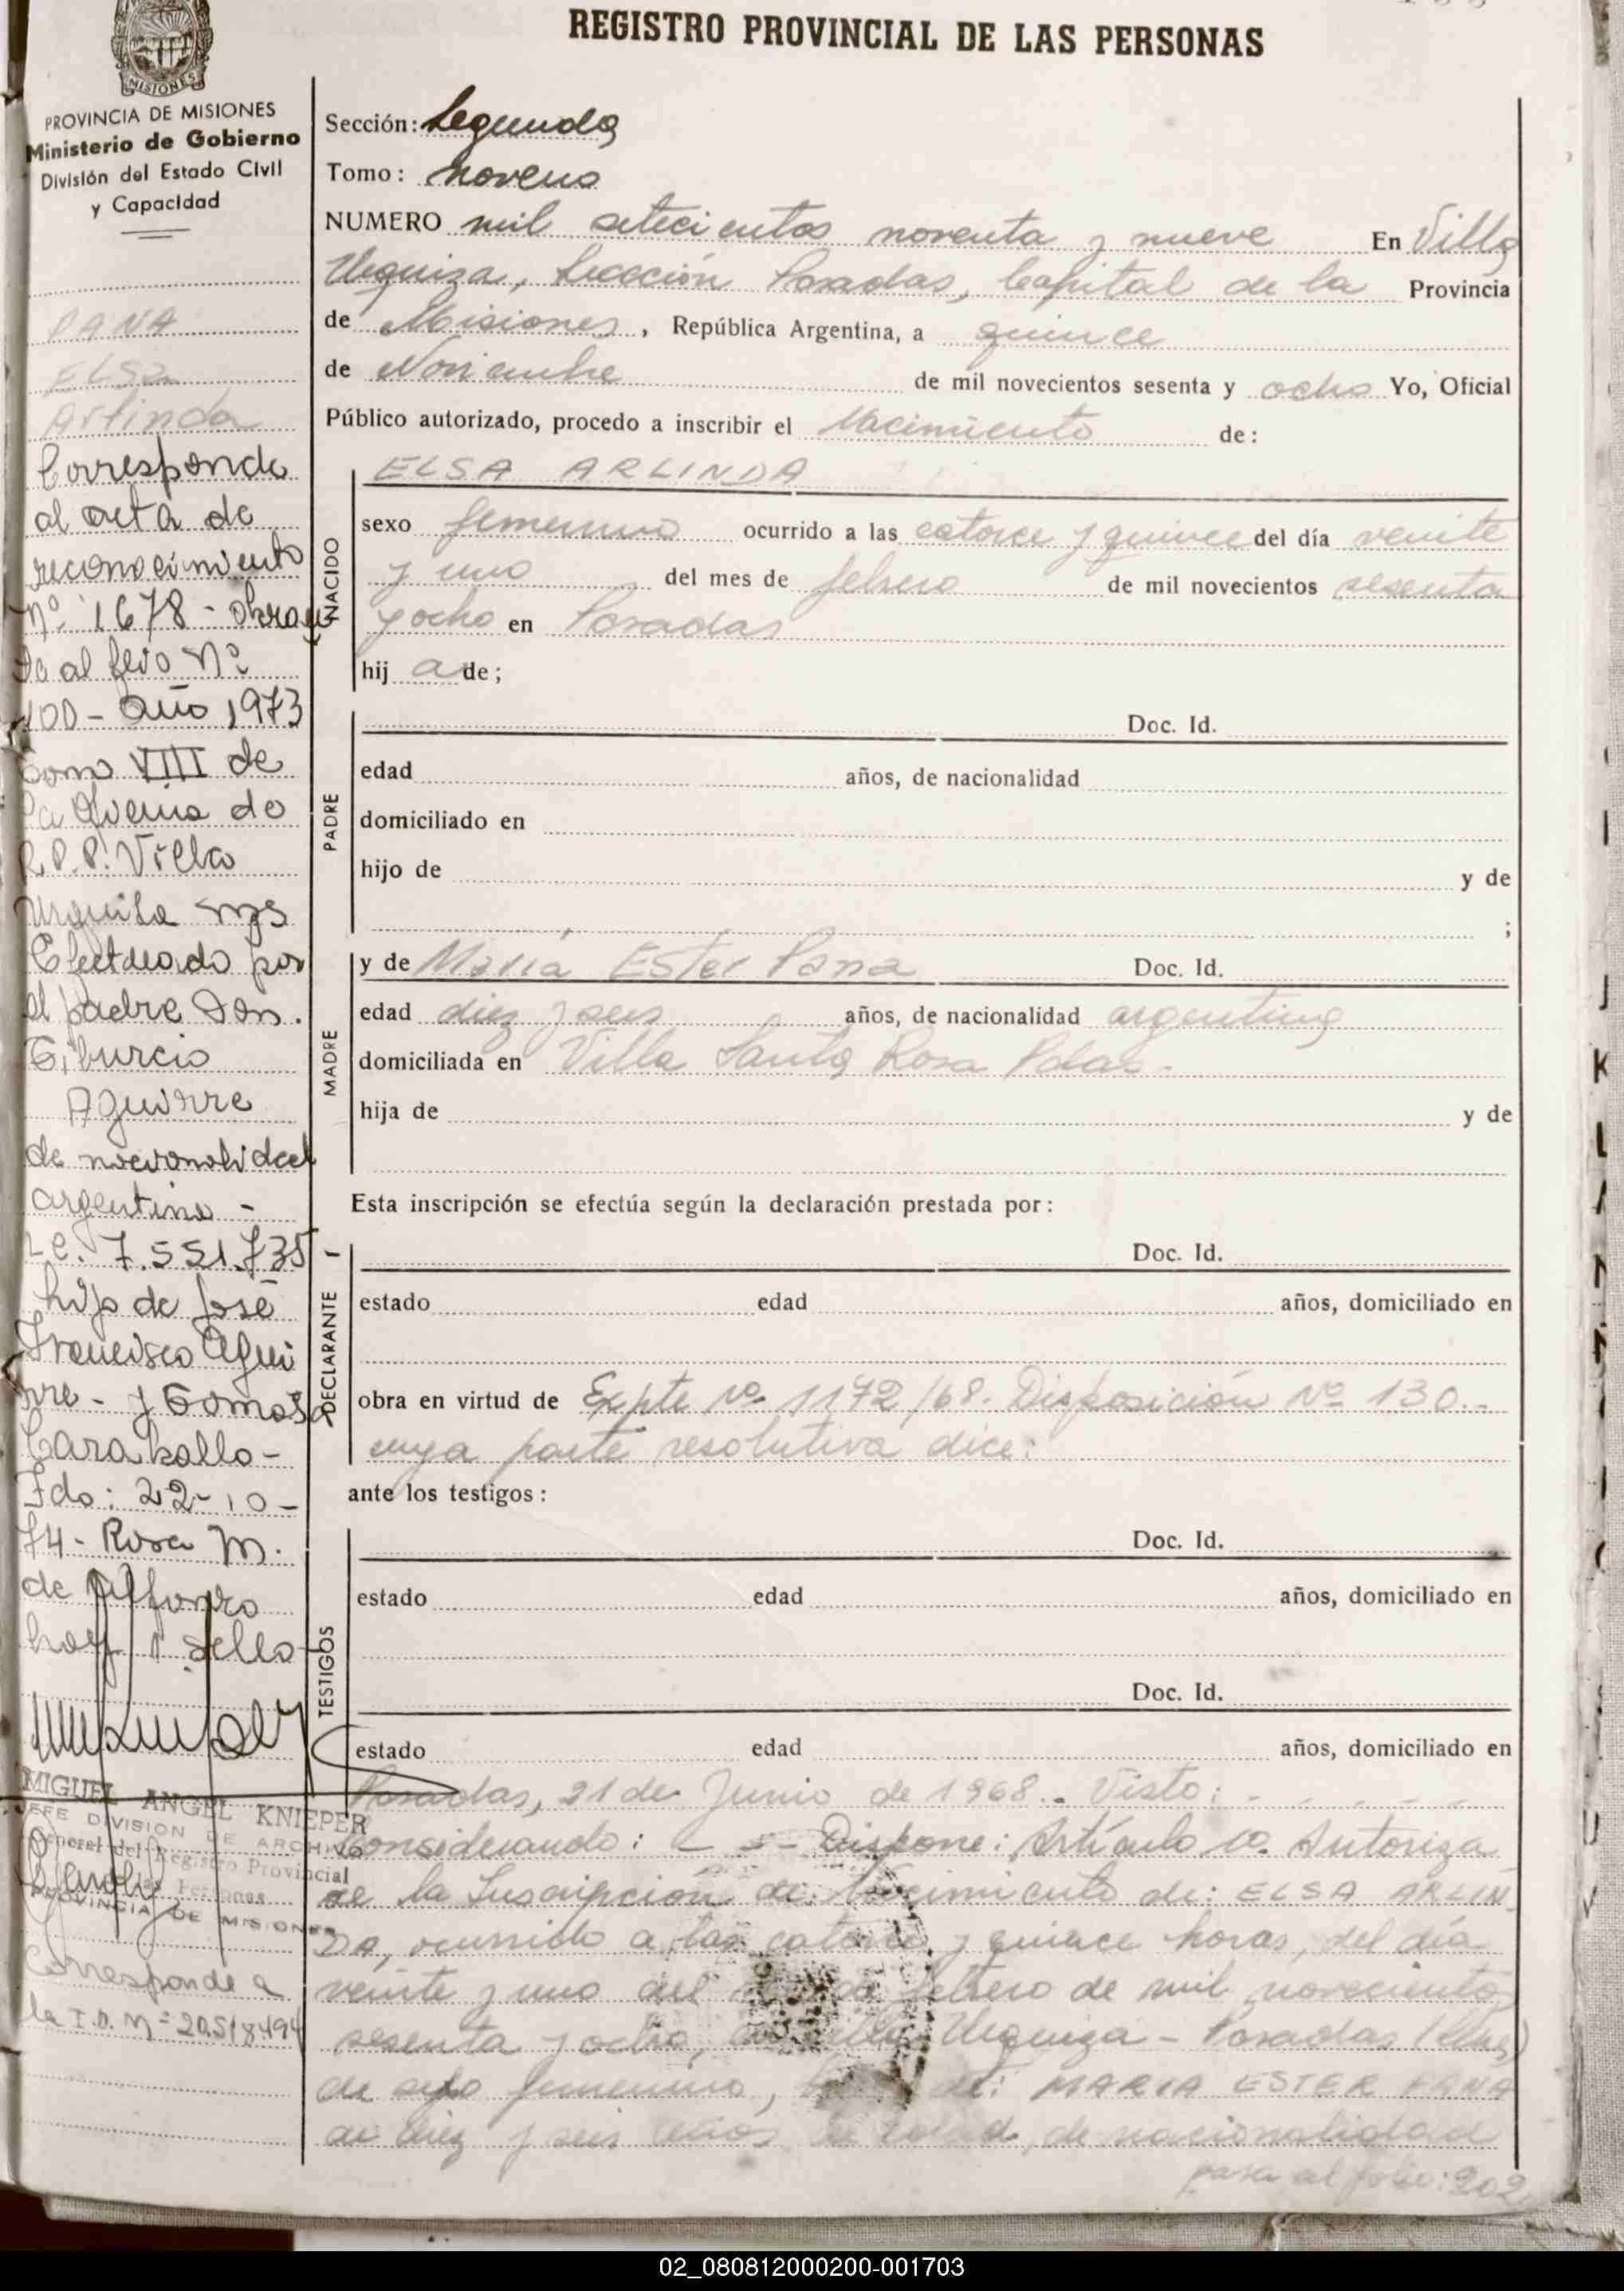 REGISTRO PROVINCIAL DE LAS PERSONAS
MISIONES
PROVINCIA DE MISIONES
Ministerio de Gobierno
División del Estado Civil
y Capacidad
PANA
ELSA
Arlinda
Corresponde
al acta de
reconocimiento
Nº 1678 - obran
te al folio Nº
100 - Año 1973
Tomo VIII de
la Oficina de
R.P.P. Villa
Urquiza mns
Efectuado por
el padre Don.
Tiburcio
Aguirre
de nacionalidad
argentino -
L.E. 7.551.735 -
hijo de José
Francisco Agui
rre - y Tomasa
Caraballo -
Fdo: 22-10-
74 - Rosa M.
de Alfonzo
hay 1 sello
MIGUEL ANGEL KNIEPER
JEFE DIVISION DE ARCHIVO
General del Registro Provincial
de las Personas
PROVINCIA DE MISIONES
Corresponde a
la I.D. Nº 20.518.494
Sección: Segunda
Tomo: noveno
NUMERO mil setecientos noventa y nueve En Villa
Urquiza, Sección Posadas, Capital de la Provincia
de Misiones, República Argentina, a quince
de Noviembre de mil novecientos sesenta y ocho Yo, Oficial
Público autorizado, procedo a inscribir el Nacimiento de:
NACIDO
ELSA ARLINDA
sexo femenino ocurrido a las catorce y quince del día veinte
y uno del mes de febrero de mil novecientos sesenta
y ocho en Posadas
hij a de;
PADRE
Doc. Id.
edad años, de nacionalidad
domiciliado en
hijo de y de
;
MADRE
y de María Ester Pana Doc. Id.
edad diez y seis años, de nacionalidad argentina
domiciliada en Villa Santa Rosa Pdas.
hija de y de
Esta inscripción se efectúa según la declaración prestada por:
DECLARANTE
Doc. Id.
estado edad años, domiciliado en
obra en virtud de Expte Nº 1172/68. Disposición Nº 130.-
cuya parte resolutiva dice:
ante los testigos:
TESTIGOS
Doc. Id.
estado edad años, domiciliado en
Doc. Id.
estado edad años, domiciliado en
Posadas, 21 de Junio de 1968.. Visto: - - - - -
Considerando: - - - Dispone: Artículo 1º. Autoriza
se la Inscripción de: Nacimiento de: ELSA ARLIN
DA, ocurrido a las catorce y quince horas, del día
veinte y uno del mes de febrero de mil novecientos
sesenta y ocho, en Villa Urquiza - Posadas
de sexo femenino, hija de: MARIA ESTER PANA
de diez y seis años de edad, de nacionalidad
pasa al folio: 202
02_080812000200-001703